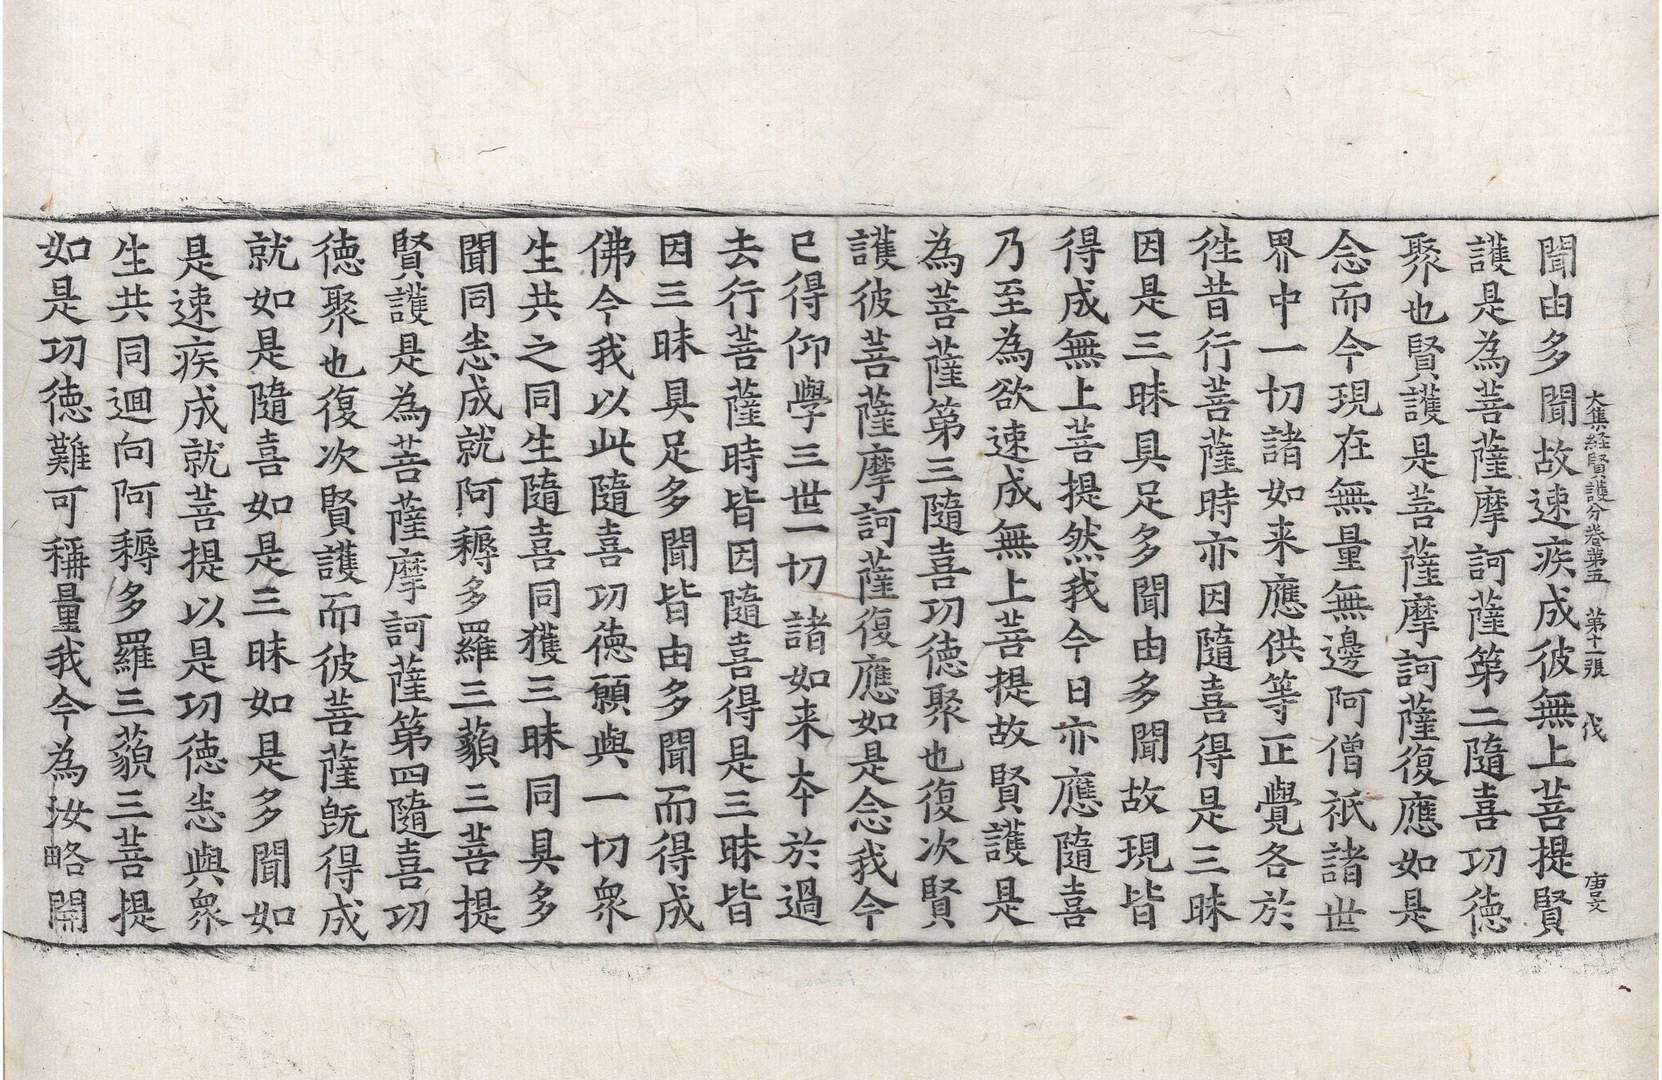 大集経賢護分卷第五　第十一張　伐　唐文
聞由多聞故速疾成彼無上菩提賢
護是為菩薩摩訶薩第二隨喜功徳
聚也賢護是菩薩摩訶薩復應如是
念而今現在無量無邊阿僧祇諸世
界中一切諸如来應供等正覺各於
徃昔行菩薩時亦因隨喜得是三昧
因是三昧具足多聞由多聞故現皆
得成無上菩提然我今日亦應隨喜
乃至為欲速成無上菩提故賢護是
為菩薩第三隨喜功徳聚也復次賢
護彼菩薩摩訶薩復應如是念我今
已得仰學三世一切諸如来夲於過
去行菩薩時皆因隨喜得是三昧皆
因三昧具足多聞皆由多聞而得成
佛今我以此隨喜功徳願與一切衆
生共之同生隨喜同獲三昧同具多
聞同悉成就阿耨多羅三藐三菩提
賢護是為菩薩摩訶薩第四隨喜功
徳聚也復次賢護而彼菩薩旣得成
就如是隨喜如是三昧如是多聞如
是速疾成就菩提以是功徳悉與衆
生共同迴向阿耨多羅三藐三菩提
如是功徳難可稱量我今為汝略開